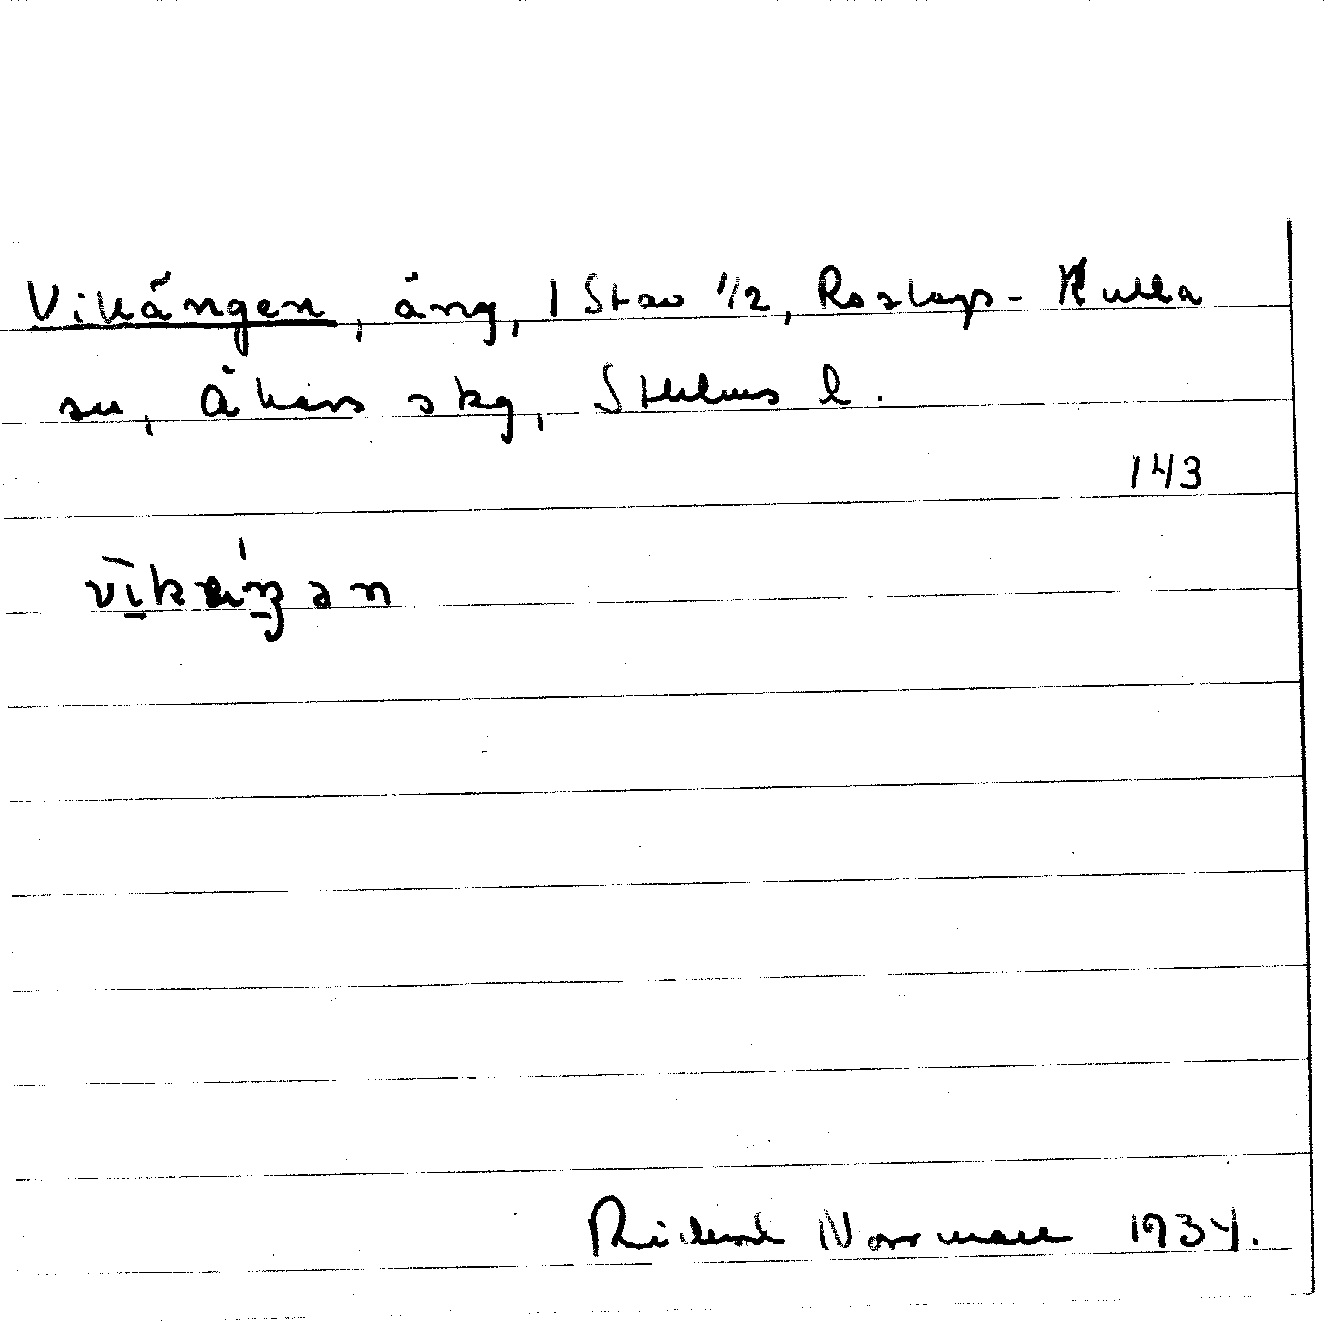 Vikängen, äng, 1 Stav 1/2, Roslags-Kulla
sn, Åkers skg, Sthlms l.
143
Norrman 1934.